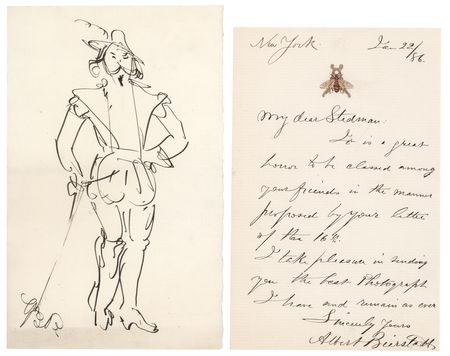 New York. Jan 22/86.
My dear Stedman:
It is a great
honor to be classed among
your friends in the manner
proposed by your letter
of the 16th.
I take pleasure in sending
you the best Photograph
I have and remain as ever
Sincerely Yours
Albert Bierstadt